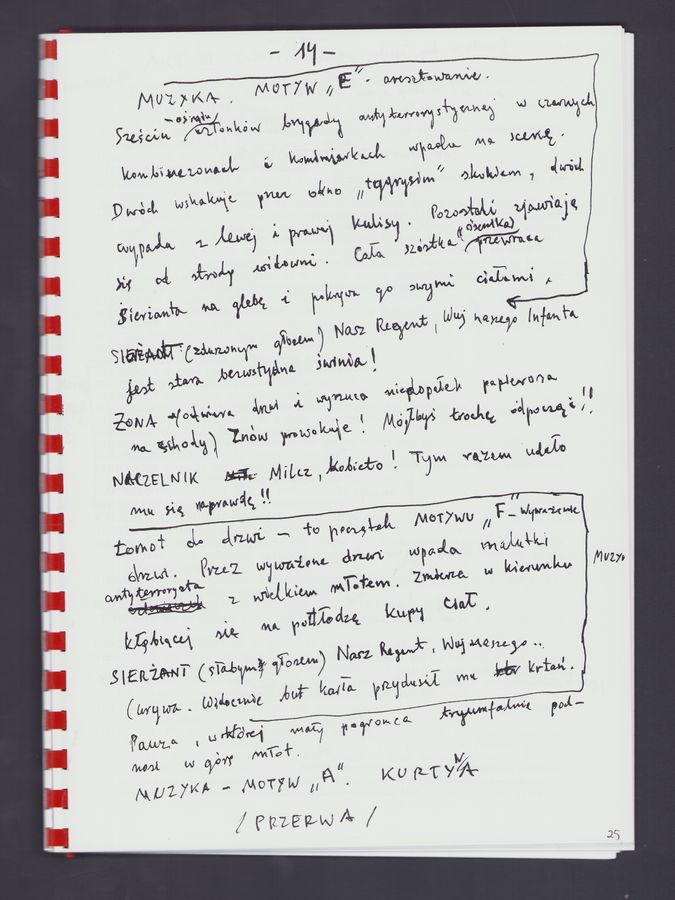 - 14 -
MUZYKA. MOTYW „E" - aresztowanie.
- ośmiu
Sześciu członków brygady antyterrorystycznej w czarnych
kombinezonach i kominiarkach wpada na scenę.
Dwóch wskakuje przez okno „tygrysim" skokiem, dwóch
wypada z lewej i prawej kulisy. Pozostali zjawiają
się od strony widowni. Cała szóstka (ósemka) przewraca
Sierżanta na glebę i pokrywa go swymi ciałami.
SIERŻANT: (zduszonym głosem) Nasz Regent, Wuj naszego Infanta
jest stara bezwstydna świnia!
ŻONA (otwiera drzwi i wyrzuca niedopałek papierosa
na schody) Znów prowokuje! Mógłbyś trochę odpocząć!!
NACZELNIK Milcz, kobieto! Tym razem udało
mu się naprawdę!!
Łomot do drzwi - to początek MOTYWU „F" - wyważenie
drzwi. Przez wyważone drzwi wpada malutki
MUZY
antyterrorysta z wielkim młotem. Zmierza w kierunku
kłębiącej się na podłodze kupy ciał.
SIERŻANT (słabym głosem) Nasz Regent, Wuj naszego..
(urywa. Widocznie but karła przydusił mu krtań.
Pauza, w której mały pogromca tryumfalnie pod-
nosi w górę młot.
MUZYKA - MOTYW „A". KURTYNA
/ PRZERWA /
25